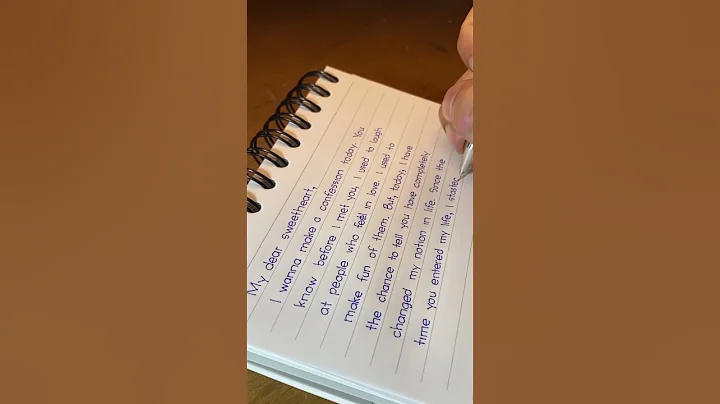 My dear sweetheart,
I wanna make a confession today. You
know before I met you, I used to laugh
at people who feel in love. I used to
make fun of them. But, today, I have
the chance to tell you have completely
changed my notion in life. Since the
time you entered my life, I starte